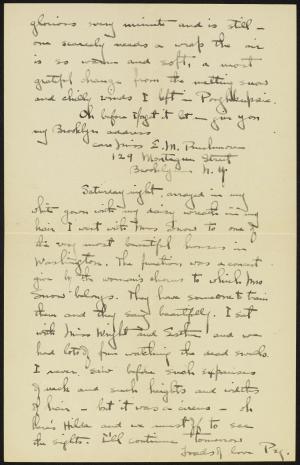 glorious every minute and is still -
one scarcely needs a wrap the air
is so warm and soft; a most
grateful change from the melting snow
and chilly winds I left in Poughkeepsie.
Oh before I forget it let me give you
my Brooklyn address
care Miss E. M.
129 Montague Street
Brooklyn N. Y.
Saturday night arrayed in my
white gown with my daisy wreath in my
hair I went with Mrs Snow to one of
the very most beautiful houses in
Washington. The function was a concert
given by the woman's chorus to which Mrs
Snow belongs. They have someone train
them and they sang beautifully. I sat
with Miss Wight and and we
had lots of fun watching the swells.
I never saw before such expanses
of neck and such heights and widths
of hair - but it was a circus - oh
here's Hilda and we must off to see
the sights. I'll continue tomorrow
Loads of love Peg.